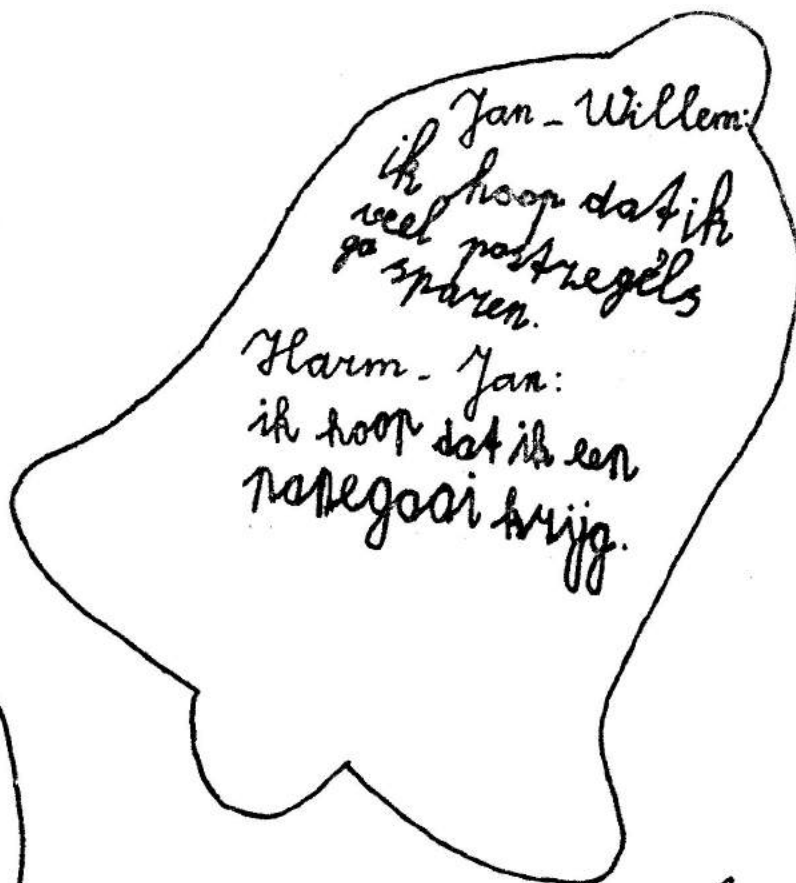 Jan-Willem:
ik hoop dat ik
veel postzegels
ga sparen.
Harm-Jan:
ik hoop dat ik een
papegaai krijg.